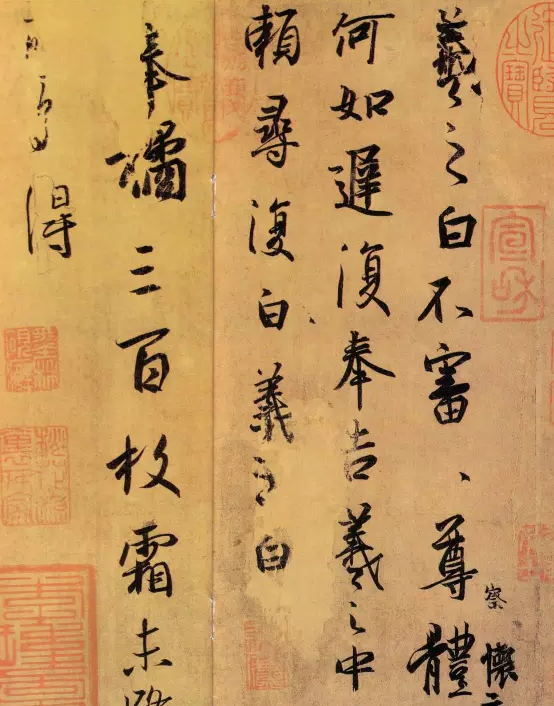 宣和
羲之白不審、尊體
察
懷
何如遲復奉告羲之中
頼尋復白羲之白
奉橘三百枚霜未
得